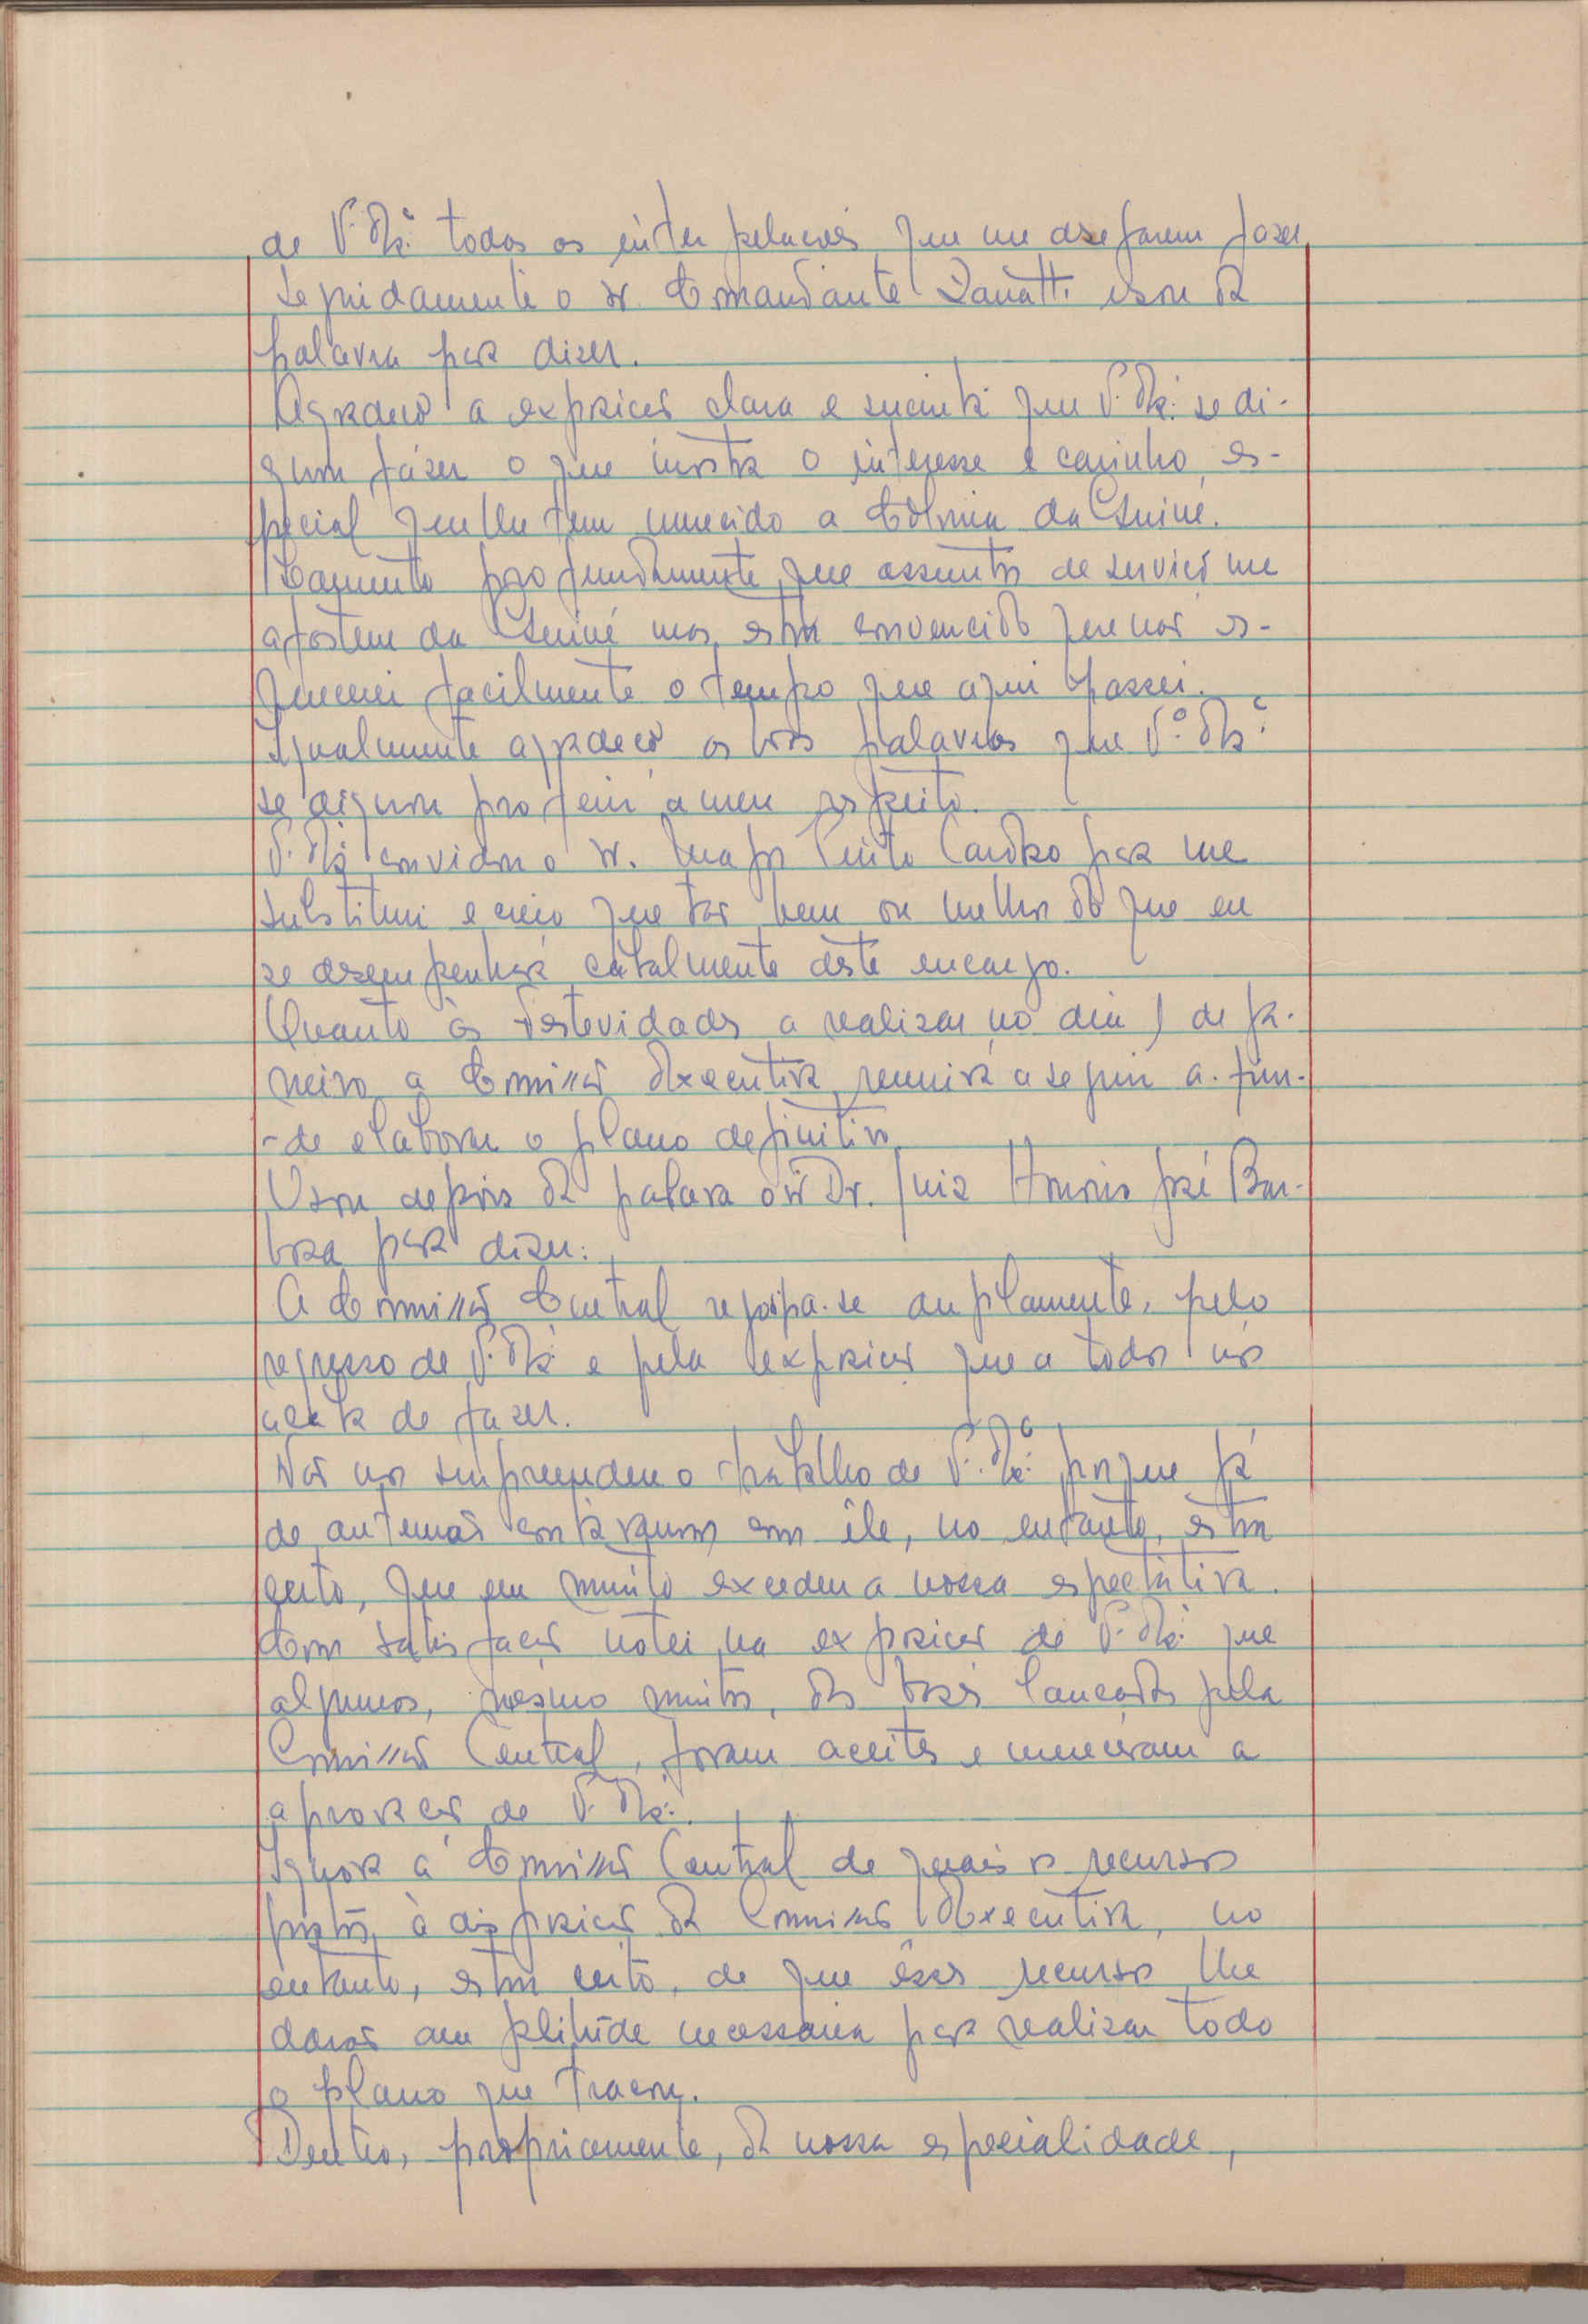 de V. Ex.ª todas as interpelações que me desejarem fazer,
Seguidamente o sr. Comandante Zanatti usou da
palavra para dizer.
Agradeço a exposição clara e sucinta que V. Ex.ª se di-
gnou fazer o que mostra o interesse e carinho es-
pecial que lhe tem merecido a Colónia da Guiné.
Lamento profundamente que assuntos de serviço me
afastem da Guiné mas, estou convencido que não es-
quecerei facilmente o tempo que aqui passei.
Igualmente agradeço as boas palavras que V.ª Ex.ª
se dignou proferir a meu respeito.
V. Ex.ª convidou o sr. Major Pinto Cardoso para me
substituir e creio que tão bem ou melhor do que eu
se desempenhará cabalmente dêste encargo.
Quanto às festevidades a realizar no dia 1 de Ja-
neiro a Comissão Executiva reunirá a seguir a fim-
-de elaborar o plano definitivo
Usou depois da palavra o sr Dr. Juiz Honório José Bar-
bosa para dizer:
A Comissão Central regosija-se amplamente, pelo
regresso de V. Ex.ª e pela exposição que a todos nós
acaba de fazer.
Não nos surpreendeu o trabalho de V. Ex.ª porque já
de antemão contávamos com êle, no entanto, estou
certo, que em muito excedeu a nossa espectativa.
Com satisfação notei na exposição de V. Ex.ª que
algumas, mesmo muitas, das bases lançadas pela
Comissão Central, foram aceites e mereceram a
aprovação de V. Ex.ª.
Ignora a Comissão Central de quais os recursos
postos à disposição da Comissão Executiva, no
entanto, estou certo, de que êsses recursos lhe
darão amplitude necessária para realizar todo
o plano que traçou.
Dentro, propriamente, da nossa especialidade,